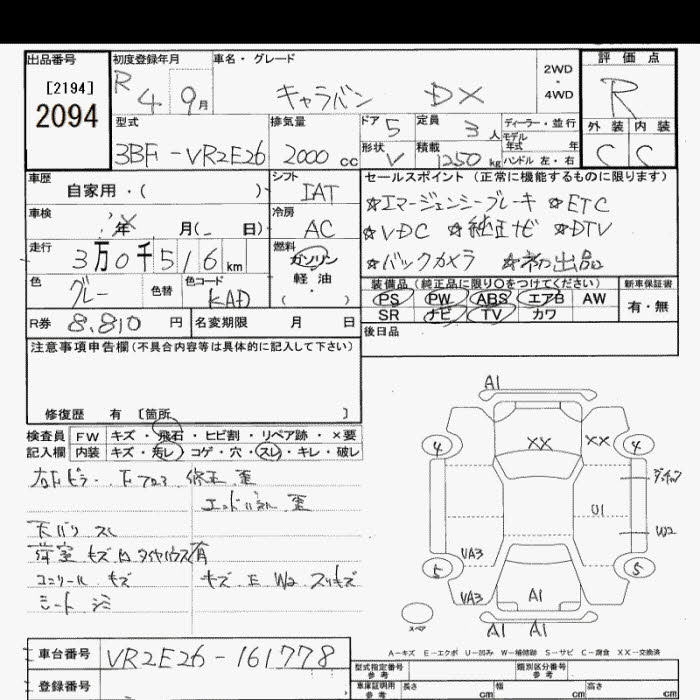 出品番号 初度登録年月 車名・グレード 評価点
[2194] R 4 9月 キャラバン DX 2WD・4WD R
2094
型式 排気量 ドア 5 定員 3人 ディーラー・並行 外装 内装
モデル年式 年
3BF-VR2E26 2000cc 形状 V 積載 1250kg ハンドル 左・右 C C
車歴 シフト セールスポイント (正常に機能するものに限ります)
自家用・( ) IAT
☆エマージェンシーブレーキ ☆ETC
車検 年 月( 日) 冷房 AC
☆VDC ☆純正ナビ ☆DTV
走行 3万0千516km 燃料 ガソリン 軽油・( )
☆バックカメラ ☆初出品
色 グレー 色替 色コード KAD
装備品 (純正品に限り○をつけてください) 新車保証書
PS PW ABS エアB AW 有・無
SR ナビ TV カワ
R券 8,810円 名変期限 月 日 後日品
注意事項申告欄(不具合内容等は具体的に記入して下さい)
修復歴 有 [箇所 ]
検査員 FW キズ・飛石・ヒビ割・リペア跡・×要
記入欄 内装 キズ・汚レ・コゲ・穴・スレ・キレ・破レ
修正 歪
歪
天バリ スレ
キズ
コンソール キズ
キズ E W2 スリキズ
シート シミ
A1
XX XX
4 4
U1
W2
UA3
5 5
UA3 A1
スペア
A1 A1
A-キズ E-エクボ U-凹み W-補修跡 S-サビ C-腐食 XX-交換済
車台番号 VR2E26-161778
型式指定番号 参考 類別区分番号 参考
登録番号
車庫証明用 参考 長さ cm 幅 cm 高さ cm